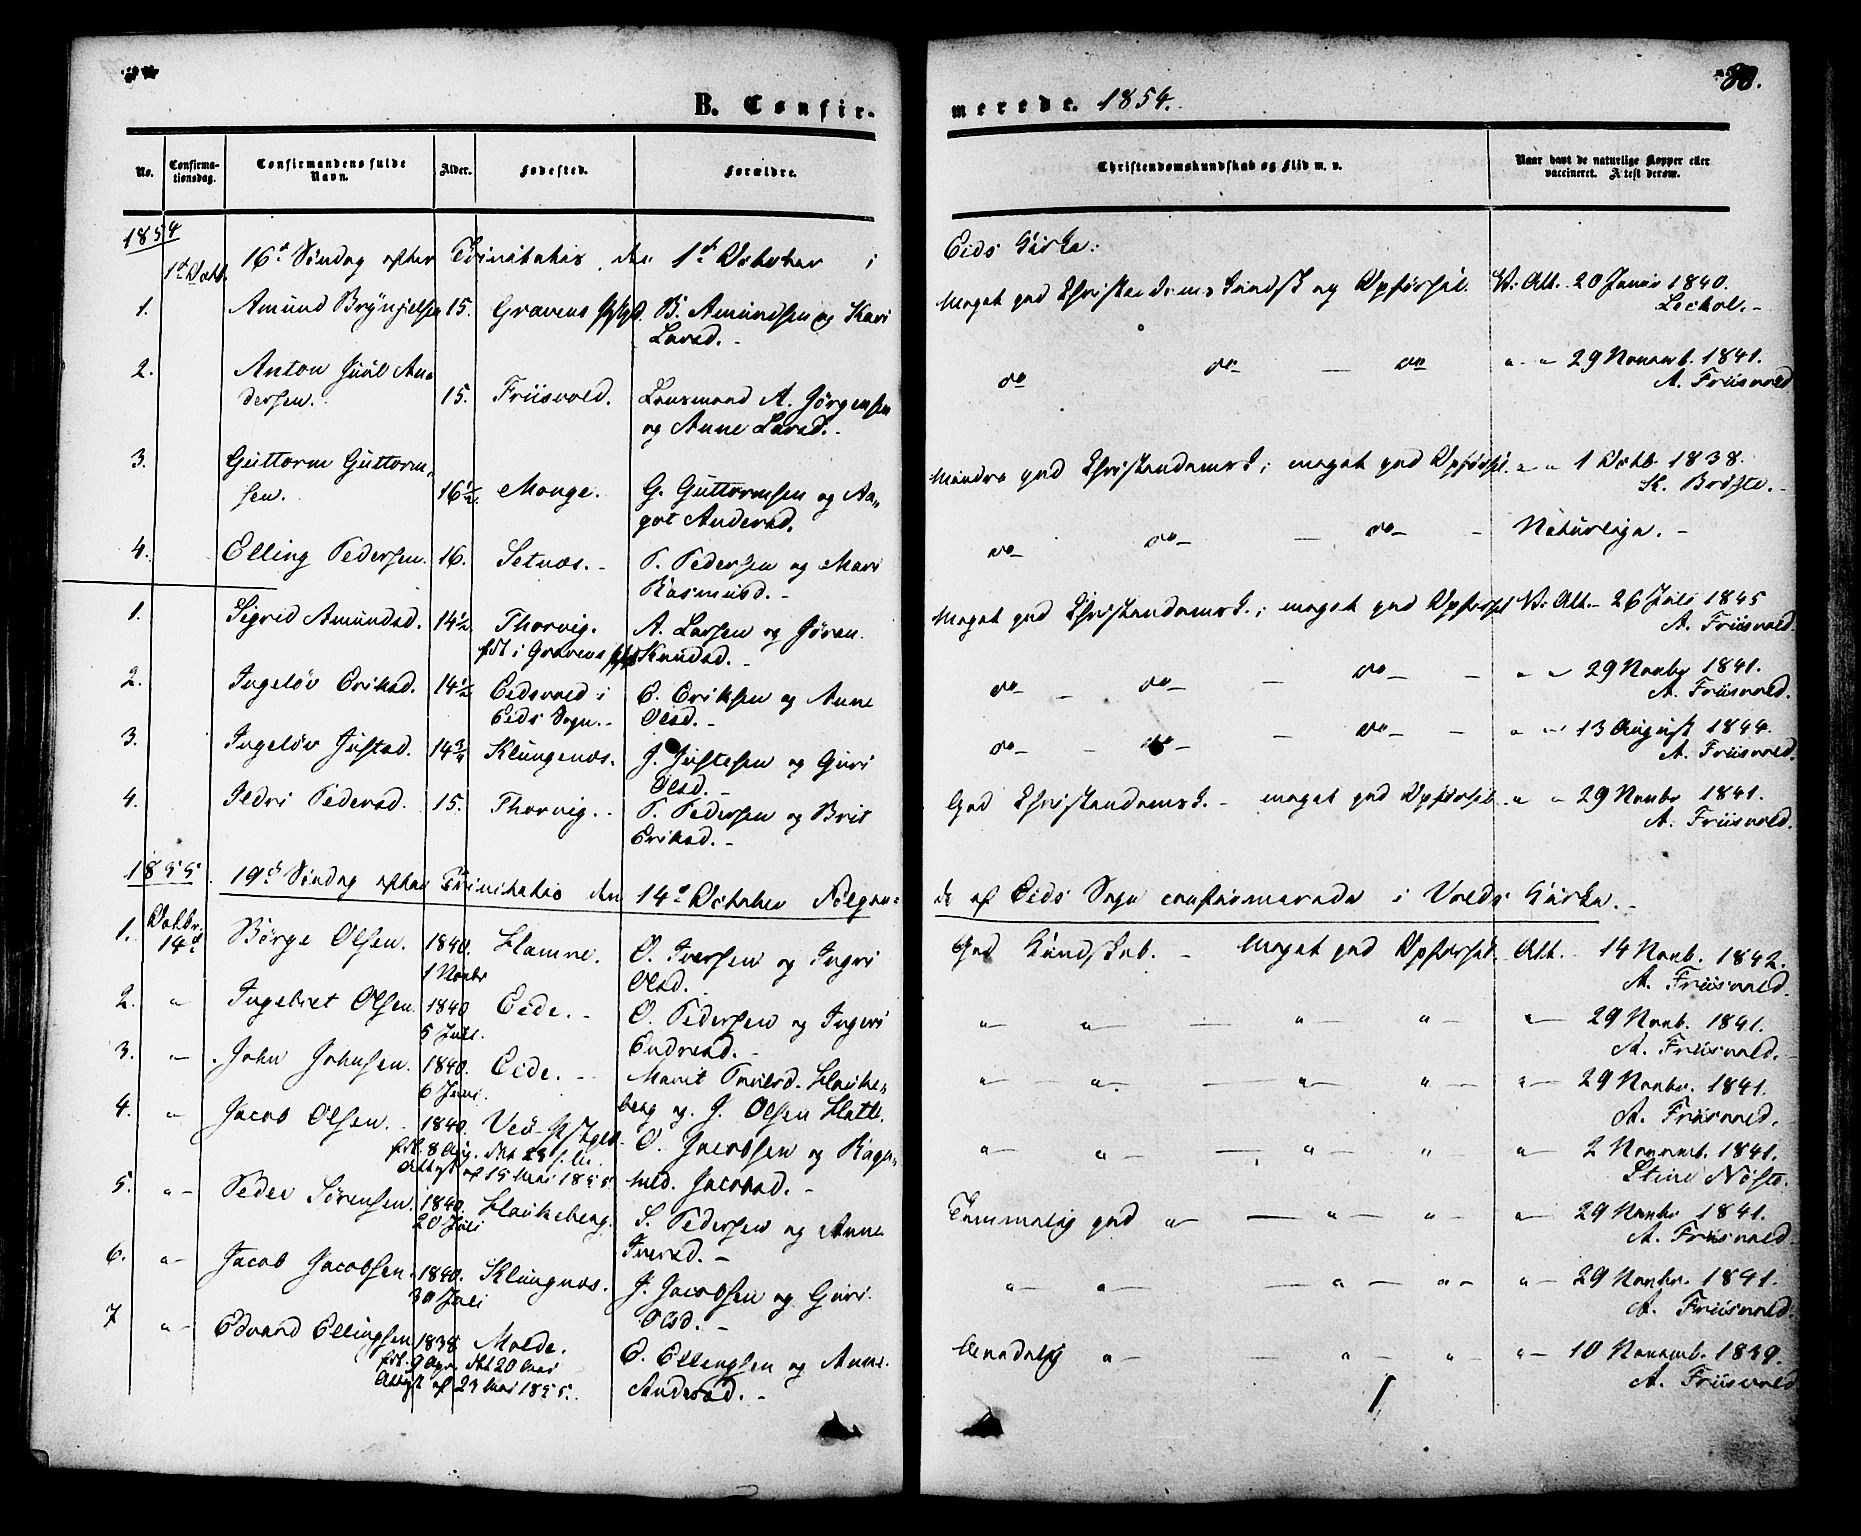 B. Confir-
merede. 1854.
88.
No.
Confirma-
tionsdag.
Confirmandens fulde
Navn.
Alder.
Fødested.
Forældre.
Christendomskundskab og Flid m. v.
Naar havt de naturlige Kopper eller
vaccineret. Atest derom.
1854
1ste Octb. 16de Søndag efter Trinitatis, den 1ste October i Eids Kirke:
1. Amund Brynjelsen 15. Gravens B. Amundsen og Kari Meget god Christendoms Kundsk og Opførsel. V. Att. 20 Januar 1840.
Larsd. -
2. Anton Juul An- do do do " " 29 Novemb. 1841.
dersen. 15. Friisvold. Lensmand A. Jørgensen A. Friisvold
og Anne Larsd. -
3. Guttorm Guttorm- Mindre god Christendomsk; meget god Opførsel. " " 1 Octb 1838.
sen. 16½ Monge. G. Guttormsen og Aa- K. Brøste. -
got Andersd.
4. Elling Pedersen. 16. Setnæs. - P. Pedersen og Mari do do do Naturlige. -
Rasmusd. -
1. Sigrid Amundsd. 14½ Thorvig. A. Larsen og Jøran Meget god Christendomsk.; meget god Opførsel V. Att. - 26 Juli 1845
født i Gravens Knudsd. - A. Friisvold.
2. Ingeløv Eriksd. 14½ Eidsvold i E. Eriksen og Anne do do do " " 29 Novbr 1841.
Eids Sogn. - Olsd. - A. Friisvold.
3. Ingeløv Justsd. 14¾ Klungenæs. J. Justesen og Guri do do do " " 13 August 1844.
Olsd. - A. Friisvold.
4. Ildri Pedersd. 15. Thorvig. - P. Pedersen og Brit God Christendomsk. - meget god Opførsel. " " 29 Novbr 1841.
Eriksd. - A. Friisvold.
1855. 19de Søndag efter Trinitatis den 14de October Følgen-
de af Eids Sogn confirmerede i Volds Kirke. -
1. Octbr. 14de Børge Olsen. 1840. Hamre. O. Iversen og Ingri God Kundskab. - Meget god Opførsel. Att. 14 Novb. 1842.
1 Novbr Olsd. A. Friisvold.
2. " Ingebret Olsen. 1840 Eide. - O. Pedersen og Ingeri " " " " " 29 Novb. 1841.
5 Juli. Endresd. - A. Friisvold. -
3. " John Johnsen. 1840. Eide. - Marit Troelsd. Hauke- " " " " " 29 Novbr. 1841.
6 Juni. berg og J. Olsen Hatle A. Friisvold.
4. " Jacob Olsen. - 1840. Veø Pstgd. O. Jacobsen og Ragn- " " " " " 2 Novemb. 1841.
fdt. 8 Aug. dbt 23 s. M. hild. Jacobsd. - Stine Nøste.
Attest af 15 Mai 1855.
5. " Peder Sørensen. 1840. Haukeberg. S. Pedersen og Anne Temmelig god " " " " 29 Novbr 1841.
20 Juli Iversd. - A. Friisvold.
6. " Jacob Jacobsen. 1840. Klungnæs. J. Jacobsen og Guri " " " " " 29 Novbr. 1841.
30 Juli Olsd. - A. Friisvold.
7 " Edvard Ellingsen 1838 Molde. E. Ellingsen og Anne " " " " 10 Novemb. 1839.
fdt. 9 dbt 20 Mai Andersd. - A. Friisvold
Attest af 23 Mai 1855.